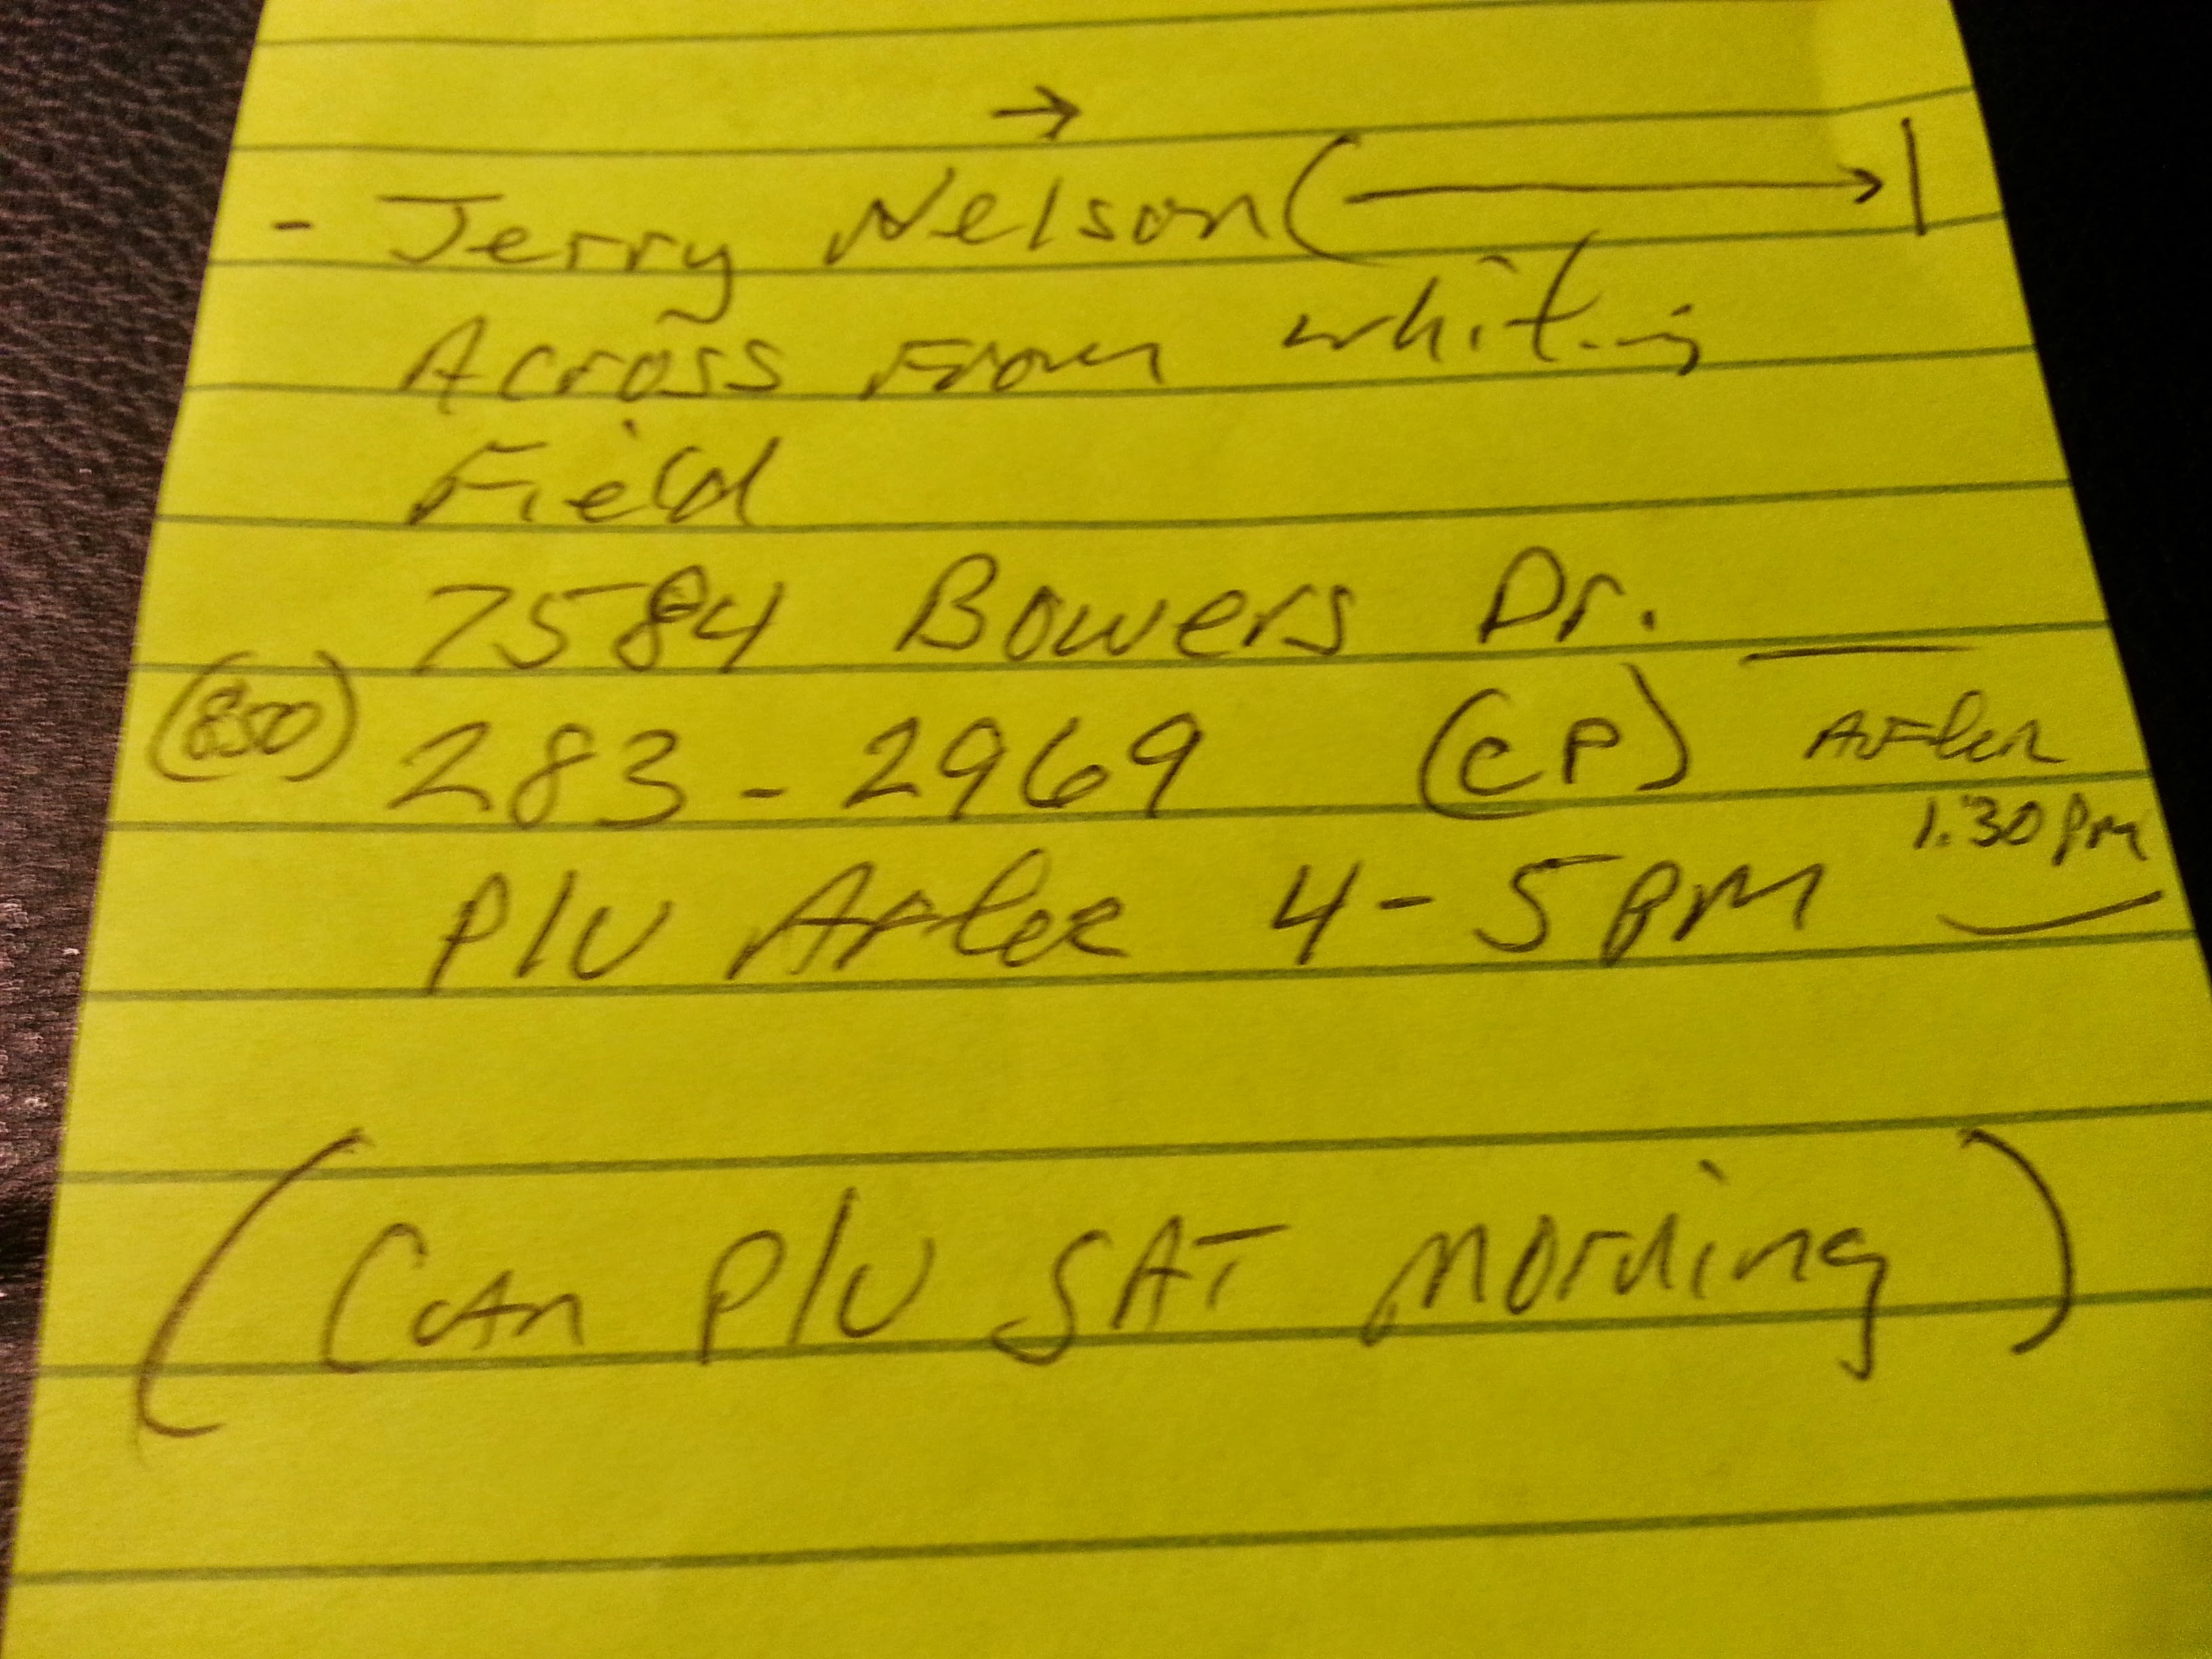 →
- Jerry Nelson (→|
Across From whiting
Field
7584 Bowers Dr.
(850) 283-2969 (cP) After
1:30 Pm
P/U After 4-5 PM
(Can P/U SAT morning)